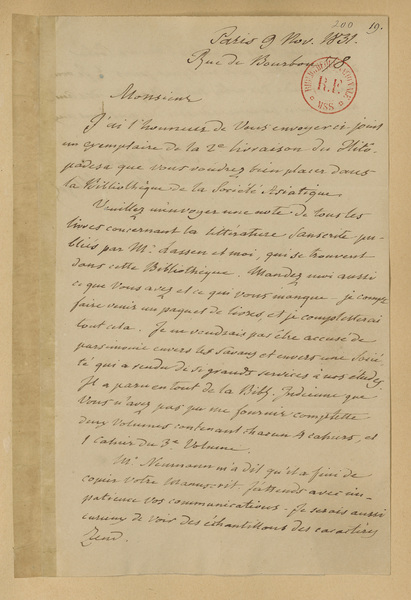 200 19.
Paris 9 Nov. 1831.
Rue de Bourbon 78.
R.F.
MSS
Monsieur
J'ai l'honneur de Vous envoyer ci-joint
un exemplaire de la 2e livraison du Hito-
padesa que vous voudrez bien placer dans
la Bibliothèque de la Société Asiatique
Veuillez m'envoyer une note de tous les
livres concernant la littérature Sanscrite pu-
bliés par Mr. Lassen et moi, qui se trouvent
dans cette Bibliothèque. Mandez moi aussi
ce que Vous avez et ce qui vous manque. je compte
faire venir un paquet de livres, et je completterai
tout cela. Je ne voudrais pas être accusé de
parsimonie envers les Savans et envers une Socié-
té qui a rendu de si grands services à nos études
Il a paru en tout de la Bibl. Indienne que
Vous n'avez pas pu me fournir complette
deux Volumes contenant chacun 4 cahiers, et
1 cahier du 3e Volume.
Mr. Neumann m'a dit qu'il a fini de
copier votre Manuscrit. J'attends avec im-
patience vos communications. Je serais aussi
curieux de voir des échantillons des caractères
Zend.